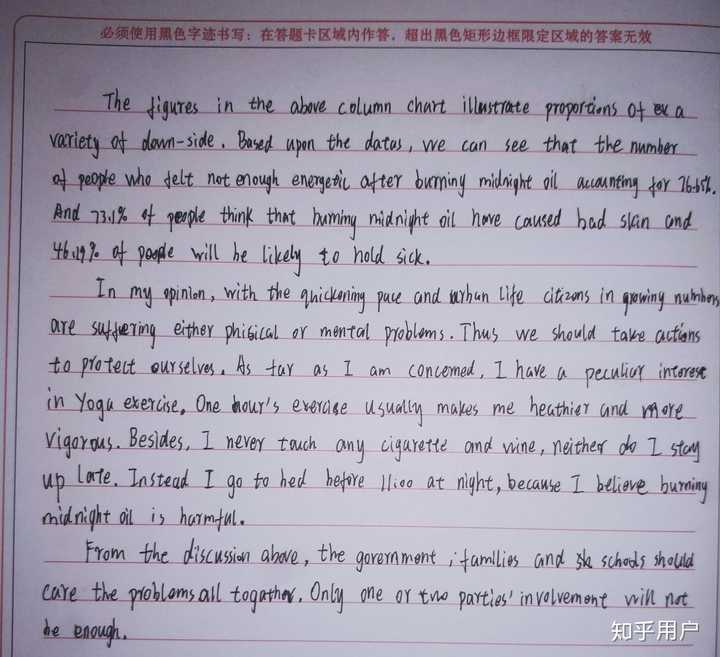 必须使用黑色字迹书写：在答题卡区域内作答，超出黑色矩形边框限定区域的答案无效
The figures in the above column chart illustrate proportions of a
variety of down-side. Based upon the datas, we can see that the number
of people who felt not enough energetic after burning midnight oil accounting for 76.65%.
And 73.1% of people think that burning midnight oil have caused bad skin and
46.19% of people will be likely to hold sick.
In my opinion, with the quickening pace and urban life citizens in growing numbers
are suffering either phisical or mental problems. Thus we should take actions
to protect ourselves. As far as I am concerned, I have a peculiar interest
in Yoga exercise. One hour's exercise usually makes me heathier and more
vigorous. Besides, I never touch any cigarette and wine, neither do I stay
up late. Instead I go to bed before 11:00 at night, because I believe burning
midnight oil is harmful.
From the discussion above, the government, families and schools should
care the problems all togather. Only one or two parties' involvement will not
be enough.
知乎用户